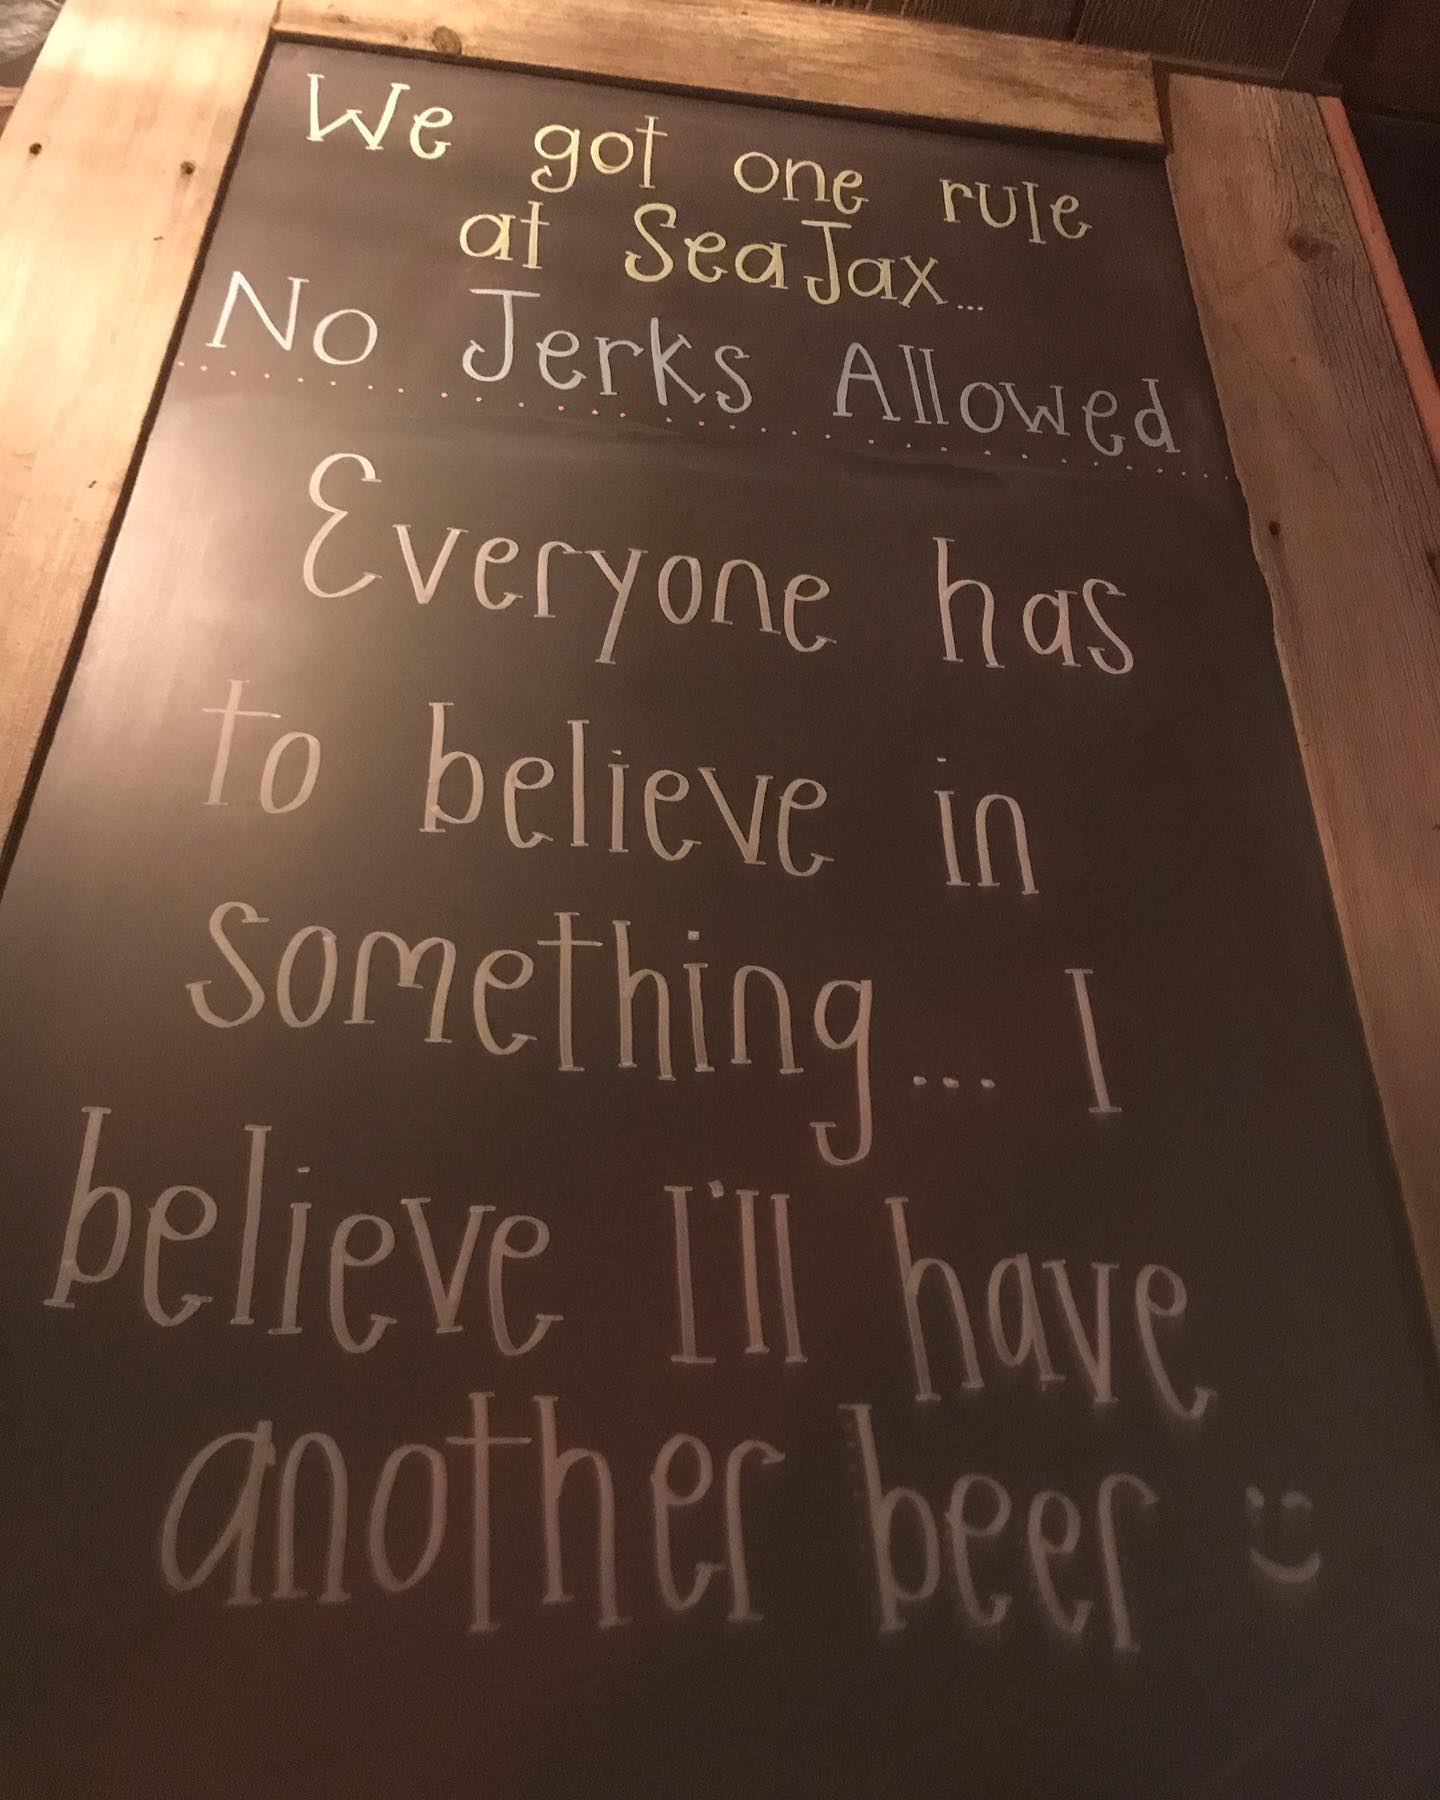 We got one rule
at SeaJax...
No Jerks Allowed
Everyone has
to believe in
something... I
believe I'll have
another beer